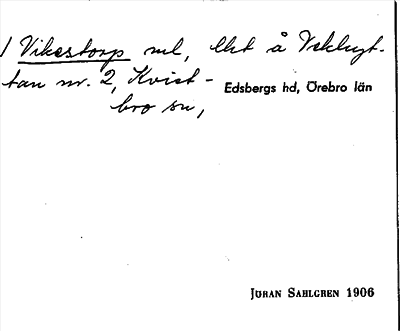 / Vikestorp rul, lht å Vekhyt-
tan nr. 2, Kvist-
bro sn,
Edsbergs hd, Örebro län
JÖRAN SAHLGREN 1906